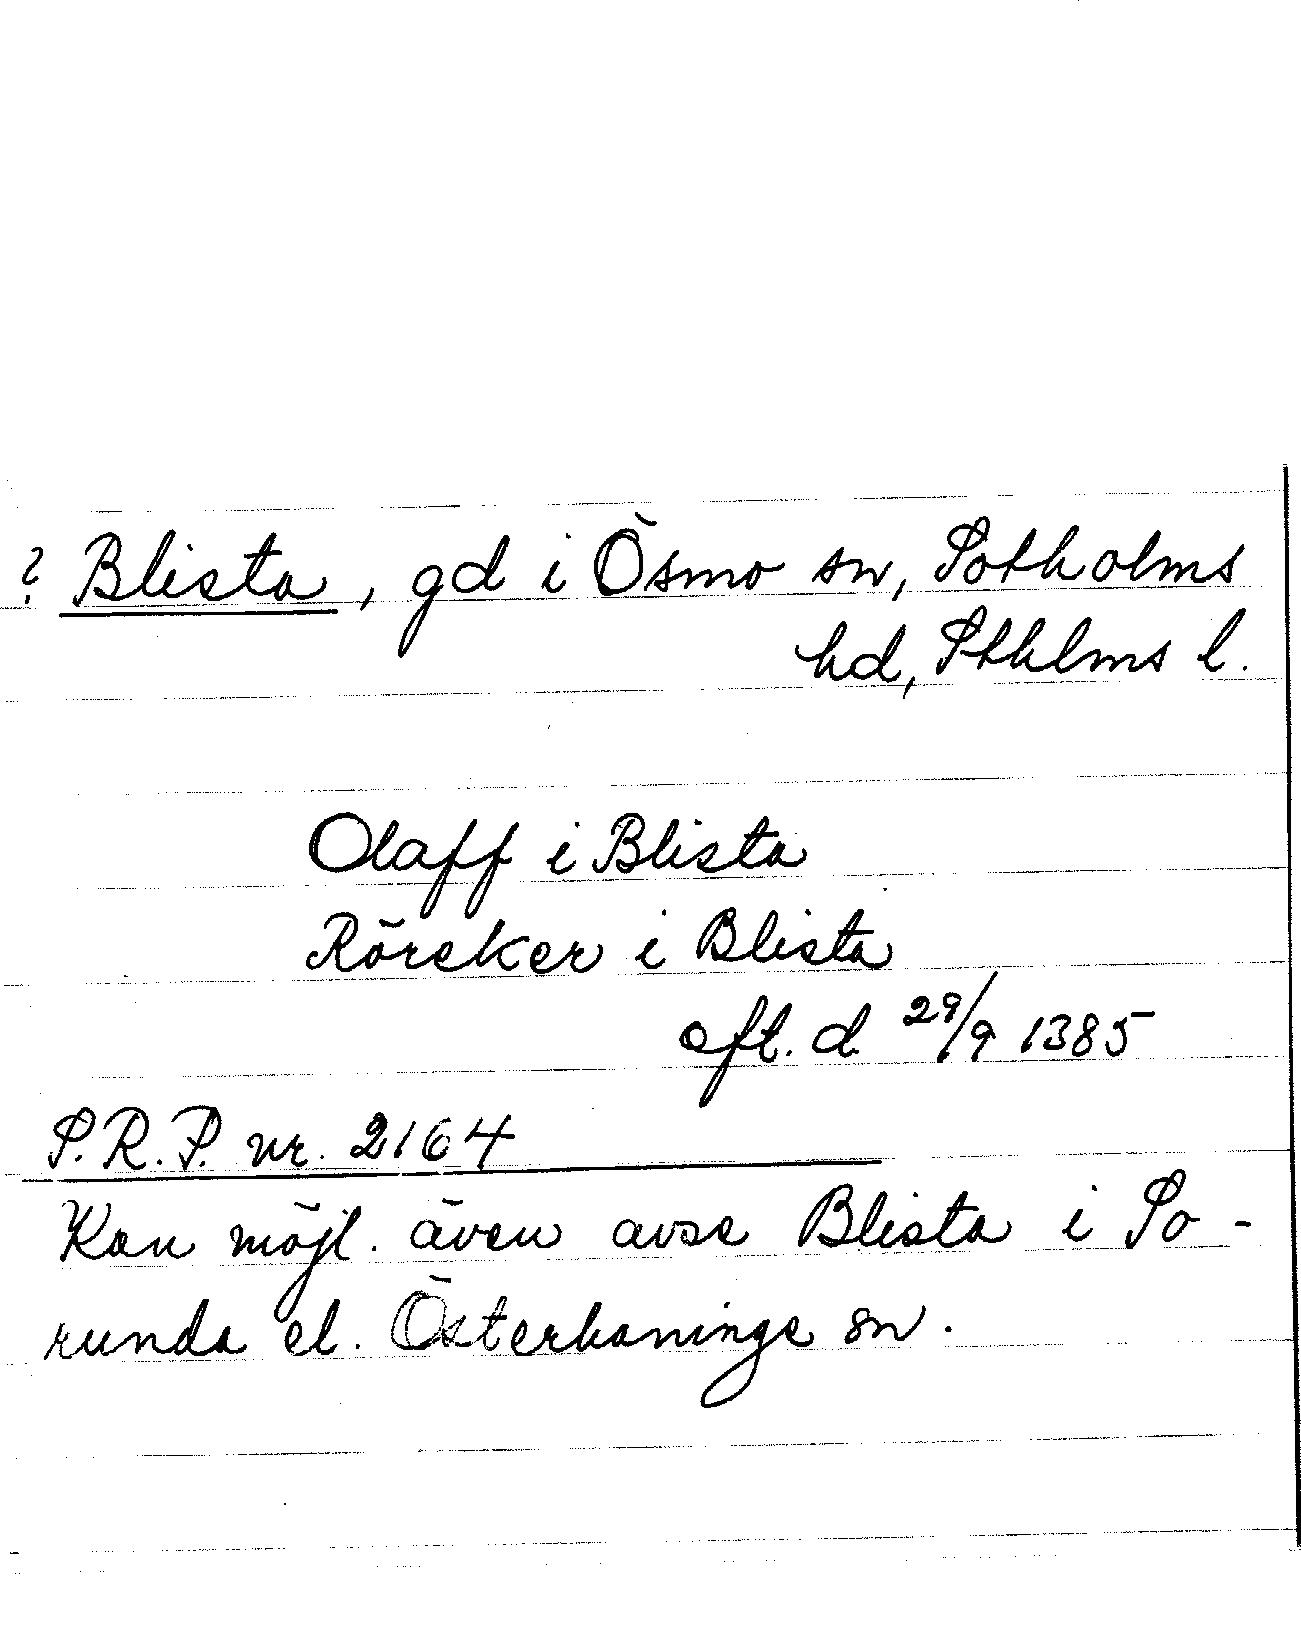 ? Blista, gd i Ösmo sn, Sotholms
hd, Sthlms l.
Olaff i Blista
Röreker i Blista
aft. d. 29/9 1385
S.R.P. nr. 2164
Kan möjl. även avse Blista i So-
runda el. Österhaninge sn.